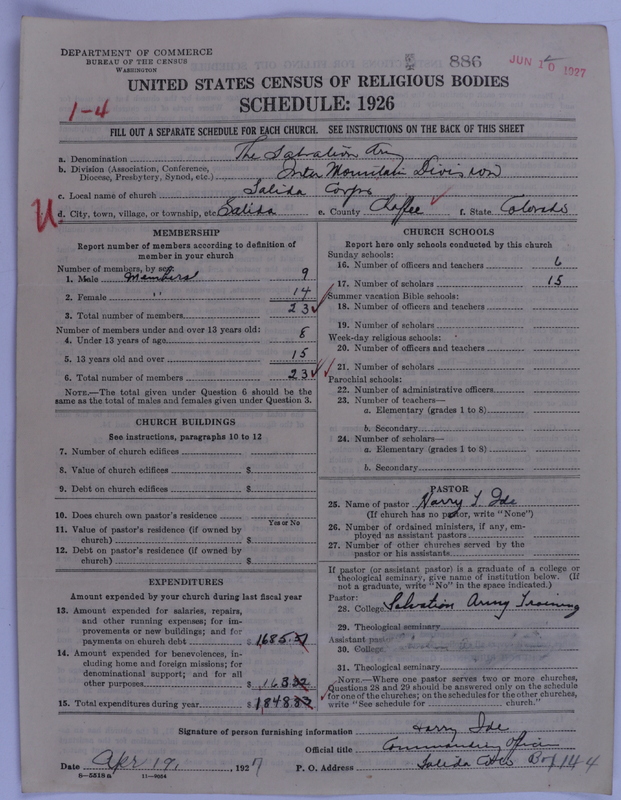 DEPARTMENT OF COMMERCE
BUREAU OF THE CENSUS
WASHINGTON
886
JUN 10 1927
UNITED STATES CENSUS OF RELIGIOUS BODIES
SCHEDULE: 1926
1-4
FILL OUT A SEPARATE SCHEDULE FOR EACH CHURCH. SEE INSTRUCTIONS ON THE BACK OF THIS SHEET
a. Denomination The Salvation Army
b. Division (Association, Conference, Diocese, Presbytery, Synod, etc.) Inter Mountain Division
c. Local name of church Salida Corps
d. City, town, village, or township, etc. Salida e. County Chaffee f. State Colorado
MEMBERSHIP
Report number of members according to definition of
member in your church
Number of members, by sex:
1. Male Members 9
2. Female " 14
3. Total number of members 23
Number of members under and over 13 years old:
4. Under 13 years of age 8
5. 13 years old and over 15
6. Total number of members 23
NOTE.—The total given under Question 6 should be the
same as the total of males and females given under Question 3.
CHURCH BUILDINGS
See instructions, paragraphs 10 to 12
7. Number of church edifices
8. Value of church edifices $
9. Debt on church edifices $
10. Does church own pastor's residence?
Yes or No
11. Value of pastor's residence (if owned by
church) $
12. Debt on pastor's residence (if owned by
church) $
EXPENDITURES
Amount expended by your church during last fiscal year
13. Amount expended for salaries, repairs,
and other running expenses; for im-
provements or new buildings; and for
payments on church debt $ 1685.
14. Amount expended for benevolences, in-
cluding home and foreign missions; for
denominational support; and for all
other purposes $
15. Total expenditures during year $ 1848
CHURCH SCHOOLS
Report here only schools conducted by this church
Sunday schools:
16. Number of officers and teachers 6
17. Number of scholars 15
Summer vacation Bible schools:
18. Number of officers and teachers
19. Number of scholars
Week-day religious schools:
20. Number of officers and teachers
21. Number of scholars
Parochial schools:
22. Number of administrative officers
23. Number of teachers—
a. Elementary (grades 1 to 8)
b. Secondary
24. Number of scholars—
a. Elementary (grades 1 to 8)
b. Secondary
PASTOR
25. Name of pastor Harry I. Ide
(If church has no pastor, write "None")
26. Number of ordained ministers, if any, em-
ployed as assistant pastors
27. Number of other churches served by the
pastor or his assistants
If pastor (or assistant pastor) is a graduate of a college or
theological seminary, give name of institution below. (If
not a graduate, write "No" in the space indicated.)
Pastor:
28. College Salvation Army Training
29. Theological seminary
Assistant pastor:
30. College
31. Theological seminary
NOTE.—Where one pastor serves two or more churches,
Questions 28 and 29 should be answered only on the schedule
for one of the churches; on the schedules for the other churches,
write "See schedule for church."
Signature of person furnishing information Harry Ide
Official title Commanding Officer
Date Apr 19, 1927 P. O. Address Salida Colo Box 144
8-5518a 11-9054